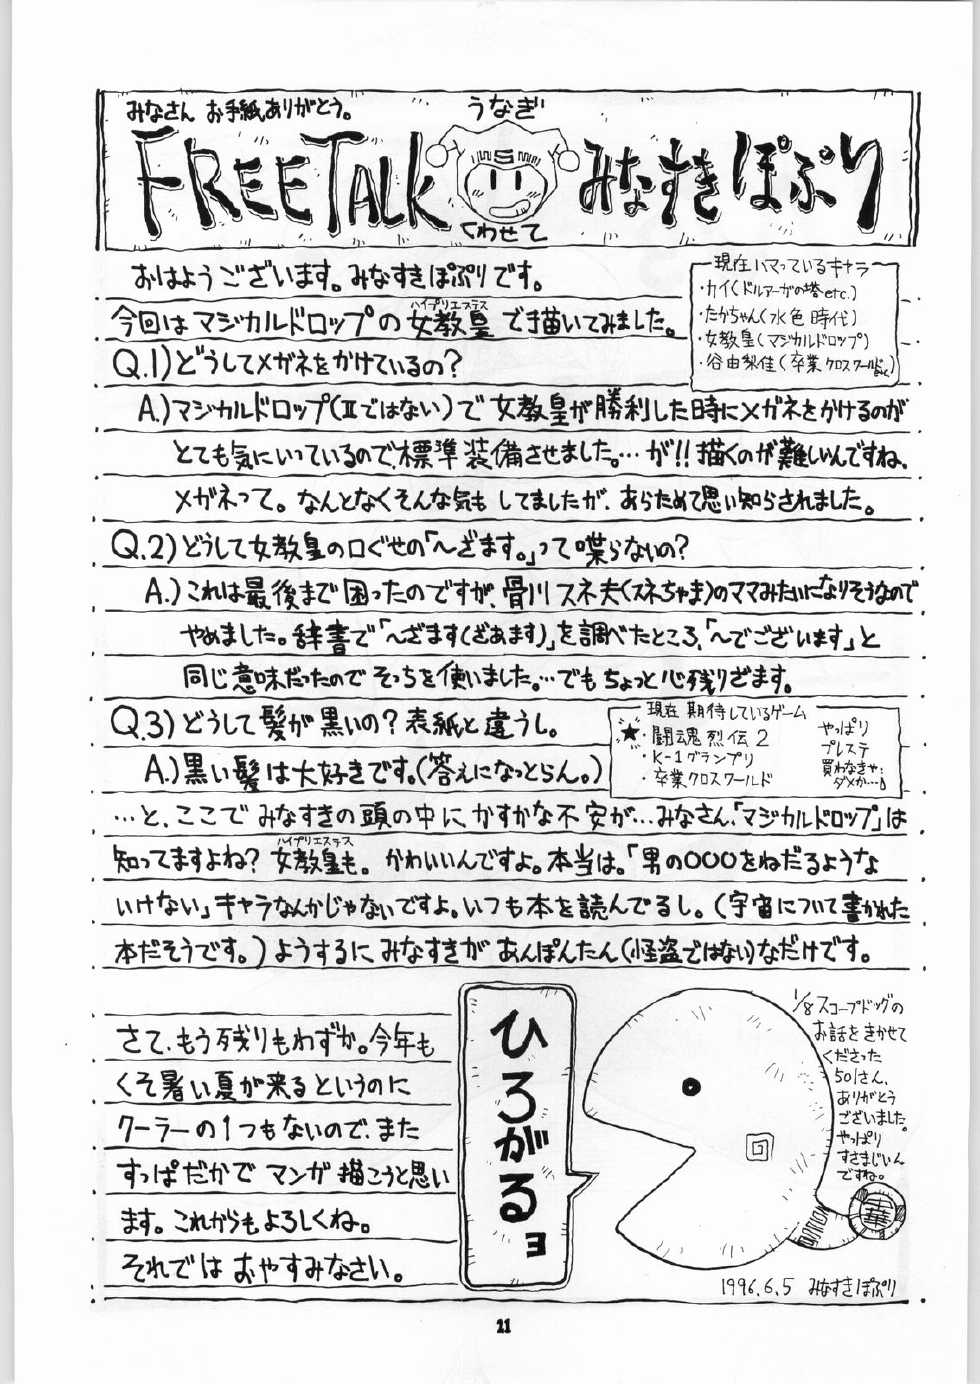 みなさん お手紙ありがとう。
うなぎ
FREE TALK
くわせて
みなすきぽぷり
おはようございます。みなすきぽぷりです。
今回はマジカルドロップの女教皇で描いてみました。
ハイプリエステス
現在ハマっているキャラ
・カイ(ドルアーガの塔etc.)
・たかちゃん(水色時代)
・女教皇(マジカルドロップ)
・谷由梨佳(卒業クロスワールドetc)
Q.1)どうしてメガネをかけているの?
A.)マジカルドロップ(Ⅱではない)で女教皇が勝利した時にメガネをかけるのが
とても気にいっているので、標準装備させました。…が!!描くのが難しいんですね、
メガネって。なんとなくそんな気もしてましたが、あらためて思い知らされました。
Q.2)どうして女教皇の口ぐせの「〜ざます。」って喋らないの?
A.)これは最後まで困ったのですが、骨川スネ夫(スネちゃま)のママみたいになりそうなので
やめました。辞書で「〜ざます(ざあます)」を調べたところ、「〜でございます」と
同じ意味だったのでそっちを使いました。…でもちょっと心残りざます。
Q.3)どうして髪が黒いの?表紙と違うし。
A.)黒い髪は大好きです。(答えになっとらん。)
現在期待しているゲーム
★・闘魂烈伝2
・K-1グランプリ
・卒業クロスワールド
やっぱり
プレステ
買わなきゃ
ダメか…。
…と、ここでみなすきの頭の中にかすかな不安が…みなさん、「マジカルドロップ」は
ハイプリエステス
知ってますよね?女教皇も。かわいいんですよ。本当は。「男の○○○をねだるような
いけない」キャラなんかじゃないですよ。いつも本を読んでるし。(宇宙について書かれた
本だそうです。)ようするにみなすきがあんぽんたん(怪盗ではない)なだけです。
さて、もう残りもわずか。今年も
くそ暑い夏が来るというのに
クーラーの1つもないので、また
すっぱだかでマンガ描こうと思い
ます。これからもよろしくね。
それではおやすみなさい。
ひろがるョ
回
1/8スコープドッグの
お話をきかせて
くださった
501さん、
ありがとう
ございました。
やっぱり
すさまじいん
ですね。
1996.6.5 みなすきぽぷり
11